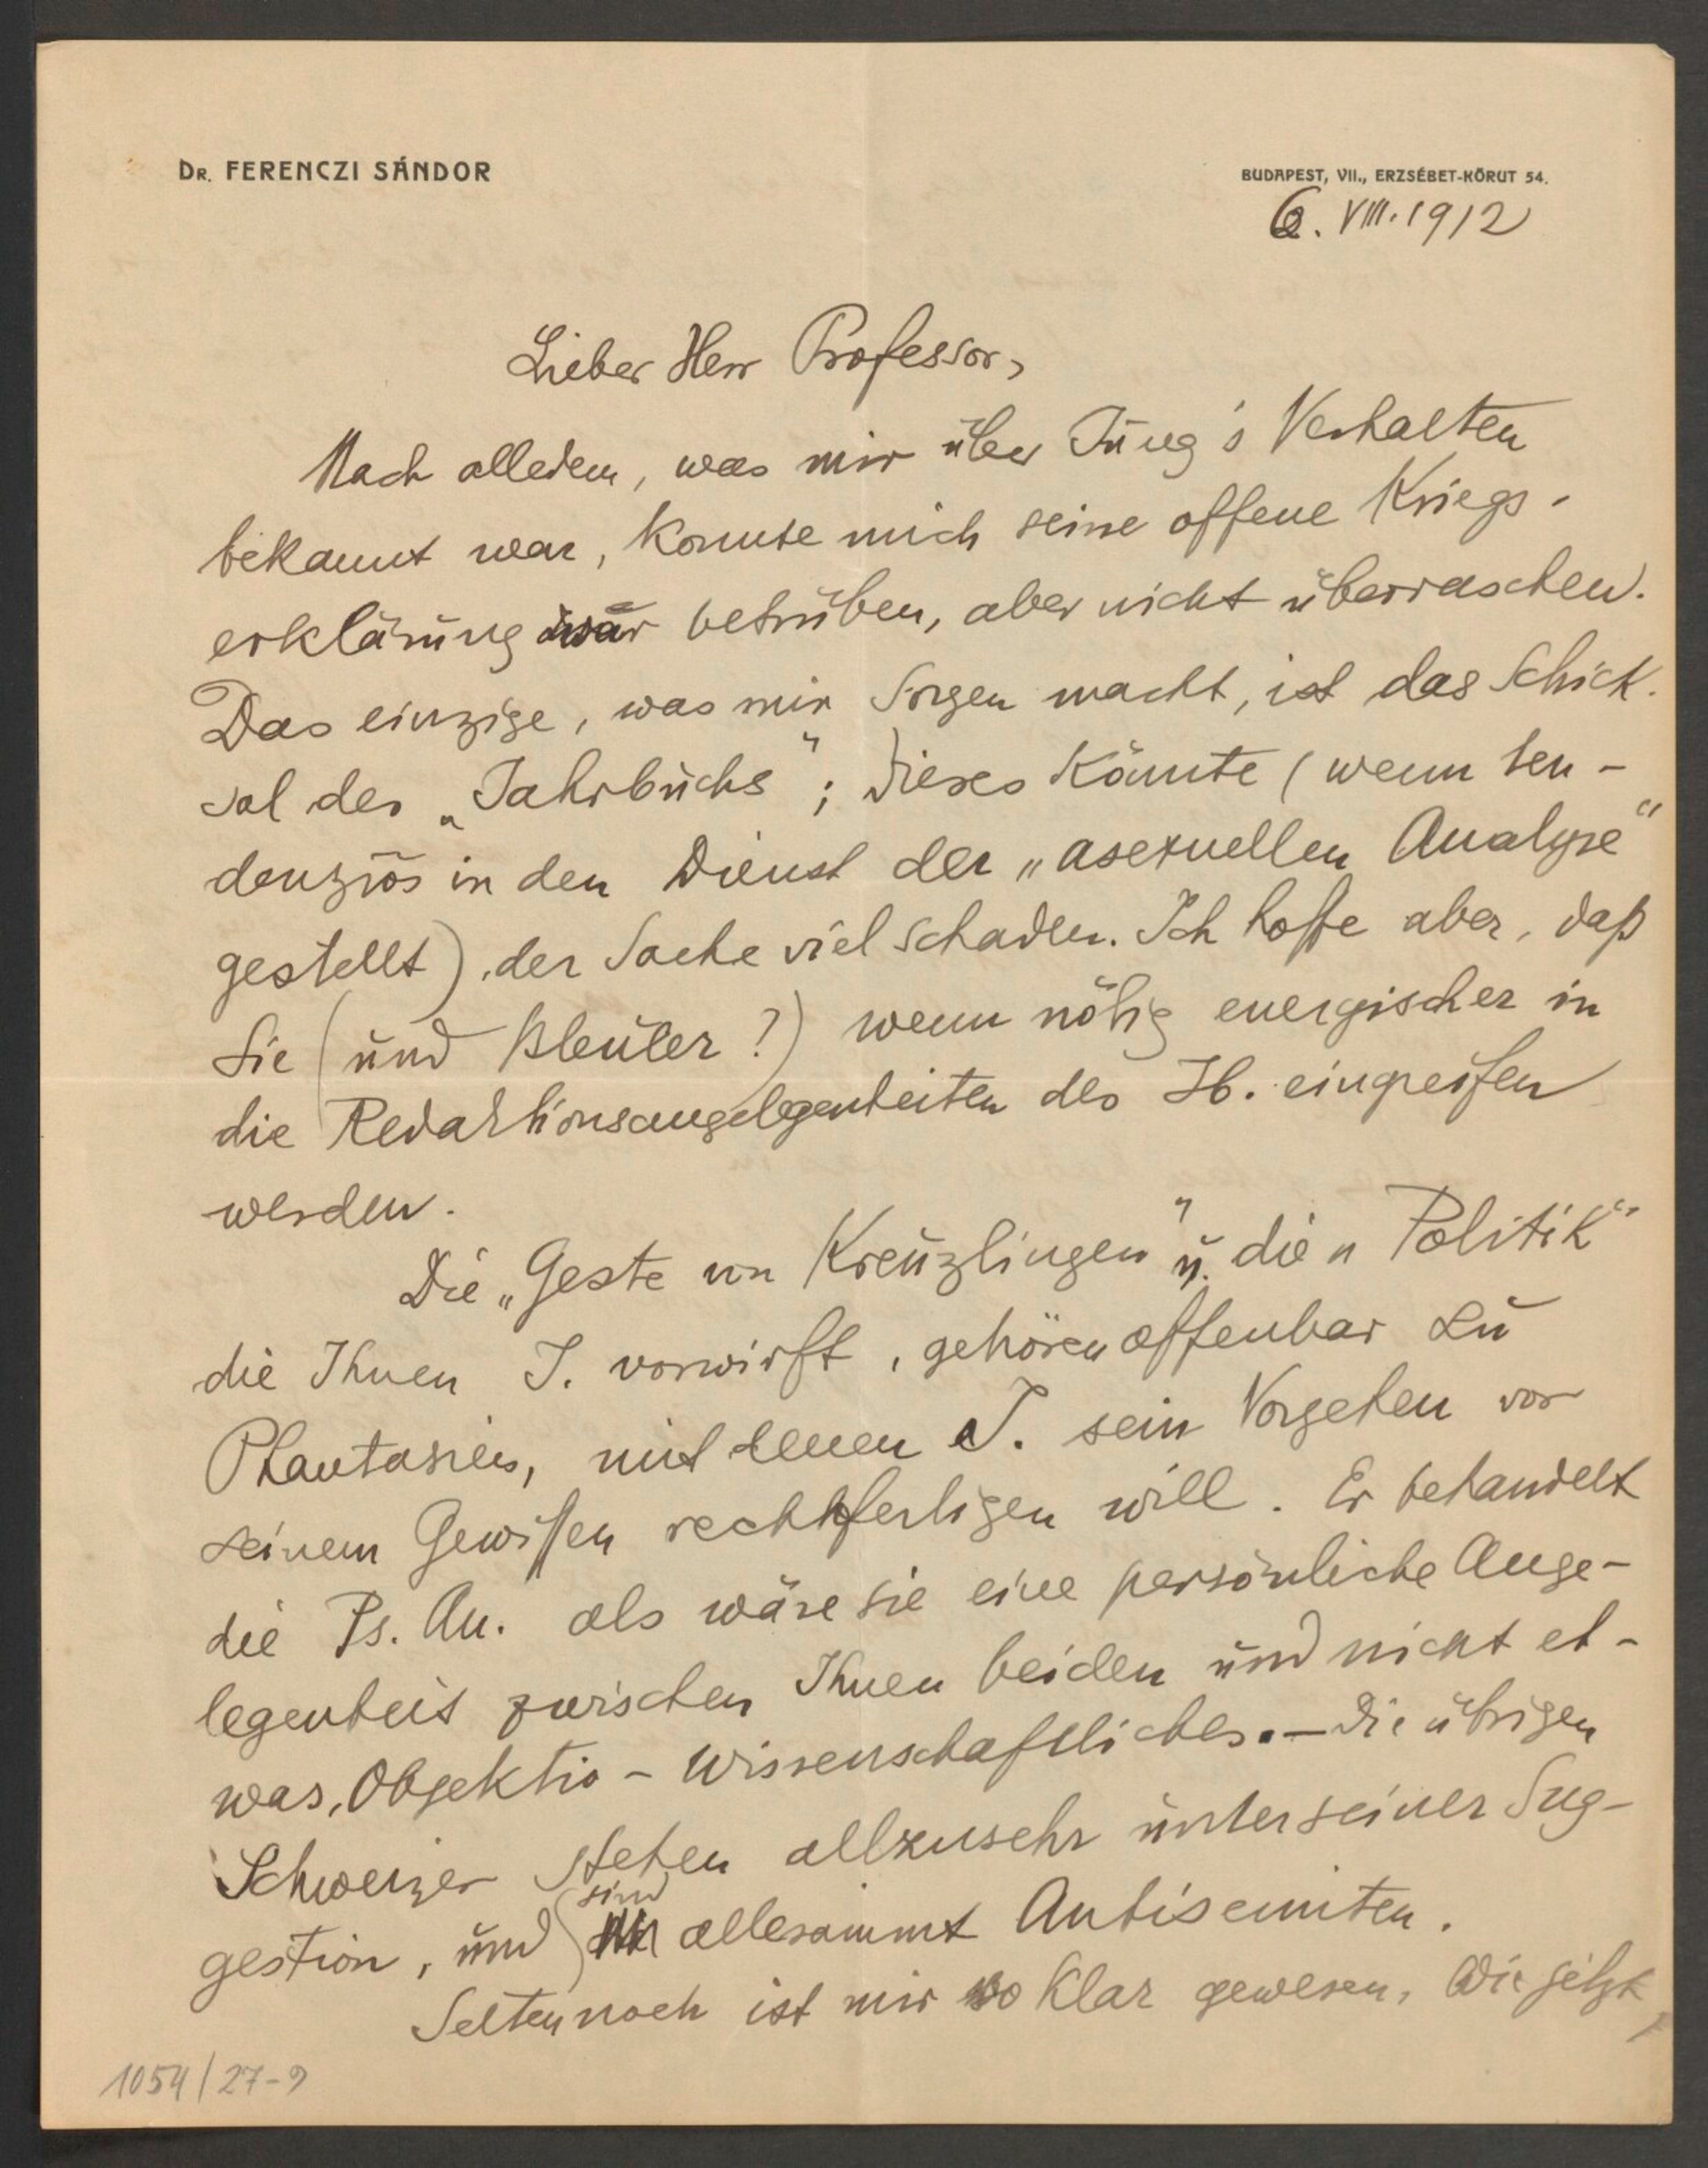 DR. FERENCZI SÁNDOR
BUDAPEST, VII., ERZSÉBET-KÖRUT 54.
6. VIII. 1912
Lieber Herr Professor,
Nach alledem, was mir über Jung's Verhalten
bekannt war, konnte mich seine offene Kriegs-
erklärung zwar betrüben, aber nicht überraschen.
Das einzige, was mir Sorgen macht, ist das Schick-
sal des „Jahrbuchs“; dieses könnte (wenn ten-
denziös in den Dienst der „asexuellen Analyse“
gestellt), der Sache viel schaden. Ich hoffe aber, daß
Sie (und Bleuler?) wenn nötig energischer in
die Redaktionsangelegenheiten des Jb. eingreifen
werden.
Die „Geste von Kreuzlingen“ u. die „Politik“
die Ihnen J. vorwirft, gehören offenbar zu
Phantasien, mit denen J. sein Vorgehen vor
seinem Gewissen rechtfertigen will. Er behandelt
die Ps. An. als wäre sie eine persönliche Ange-
legenheit zwischen Ihnen beiden und nicht et-
was, Objektiv-Wissenschaftliches. – Die übrigen
Schweizer stehen allzusehr unter seiner Sug-
gestion, und sind allesammt Antisemiten.
Selten noch ist mir so klar gewesen, wie jetzt,
1054/27-9